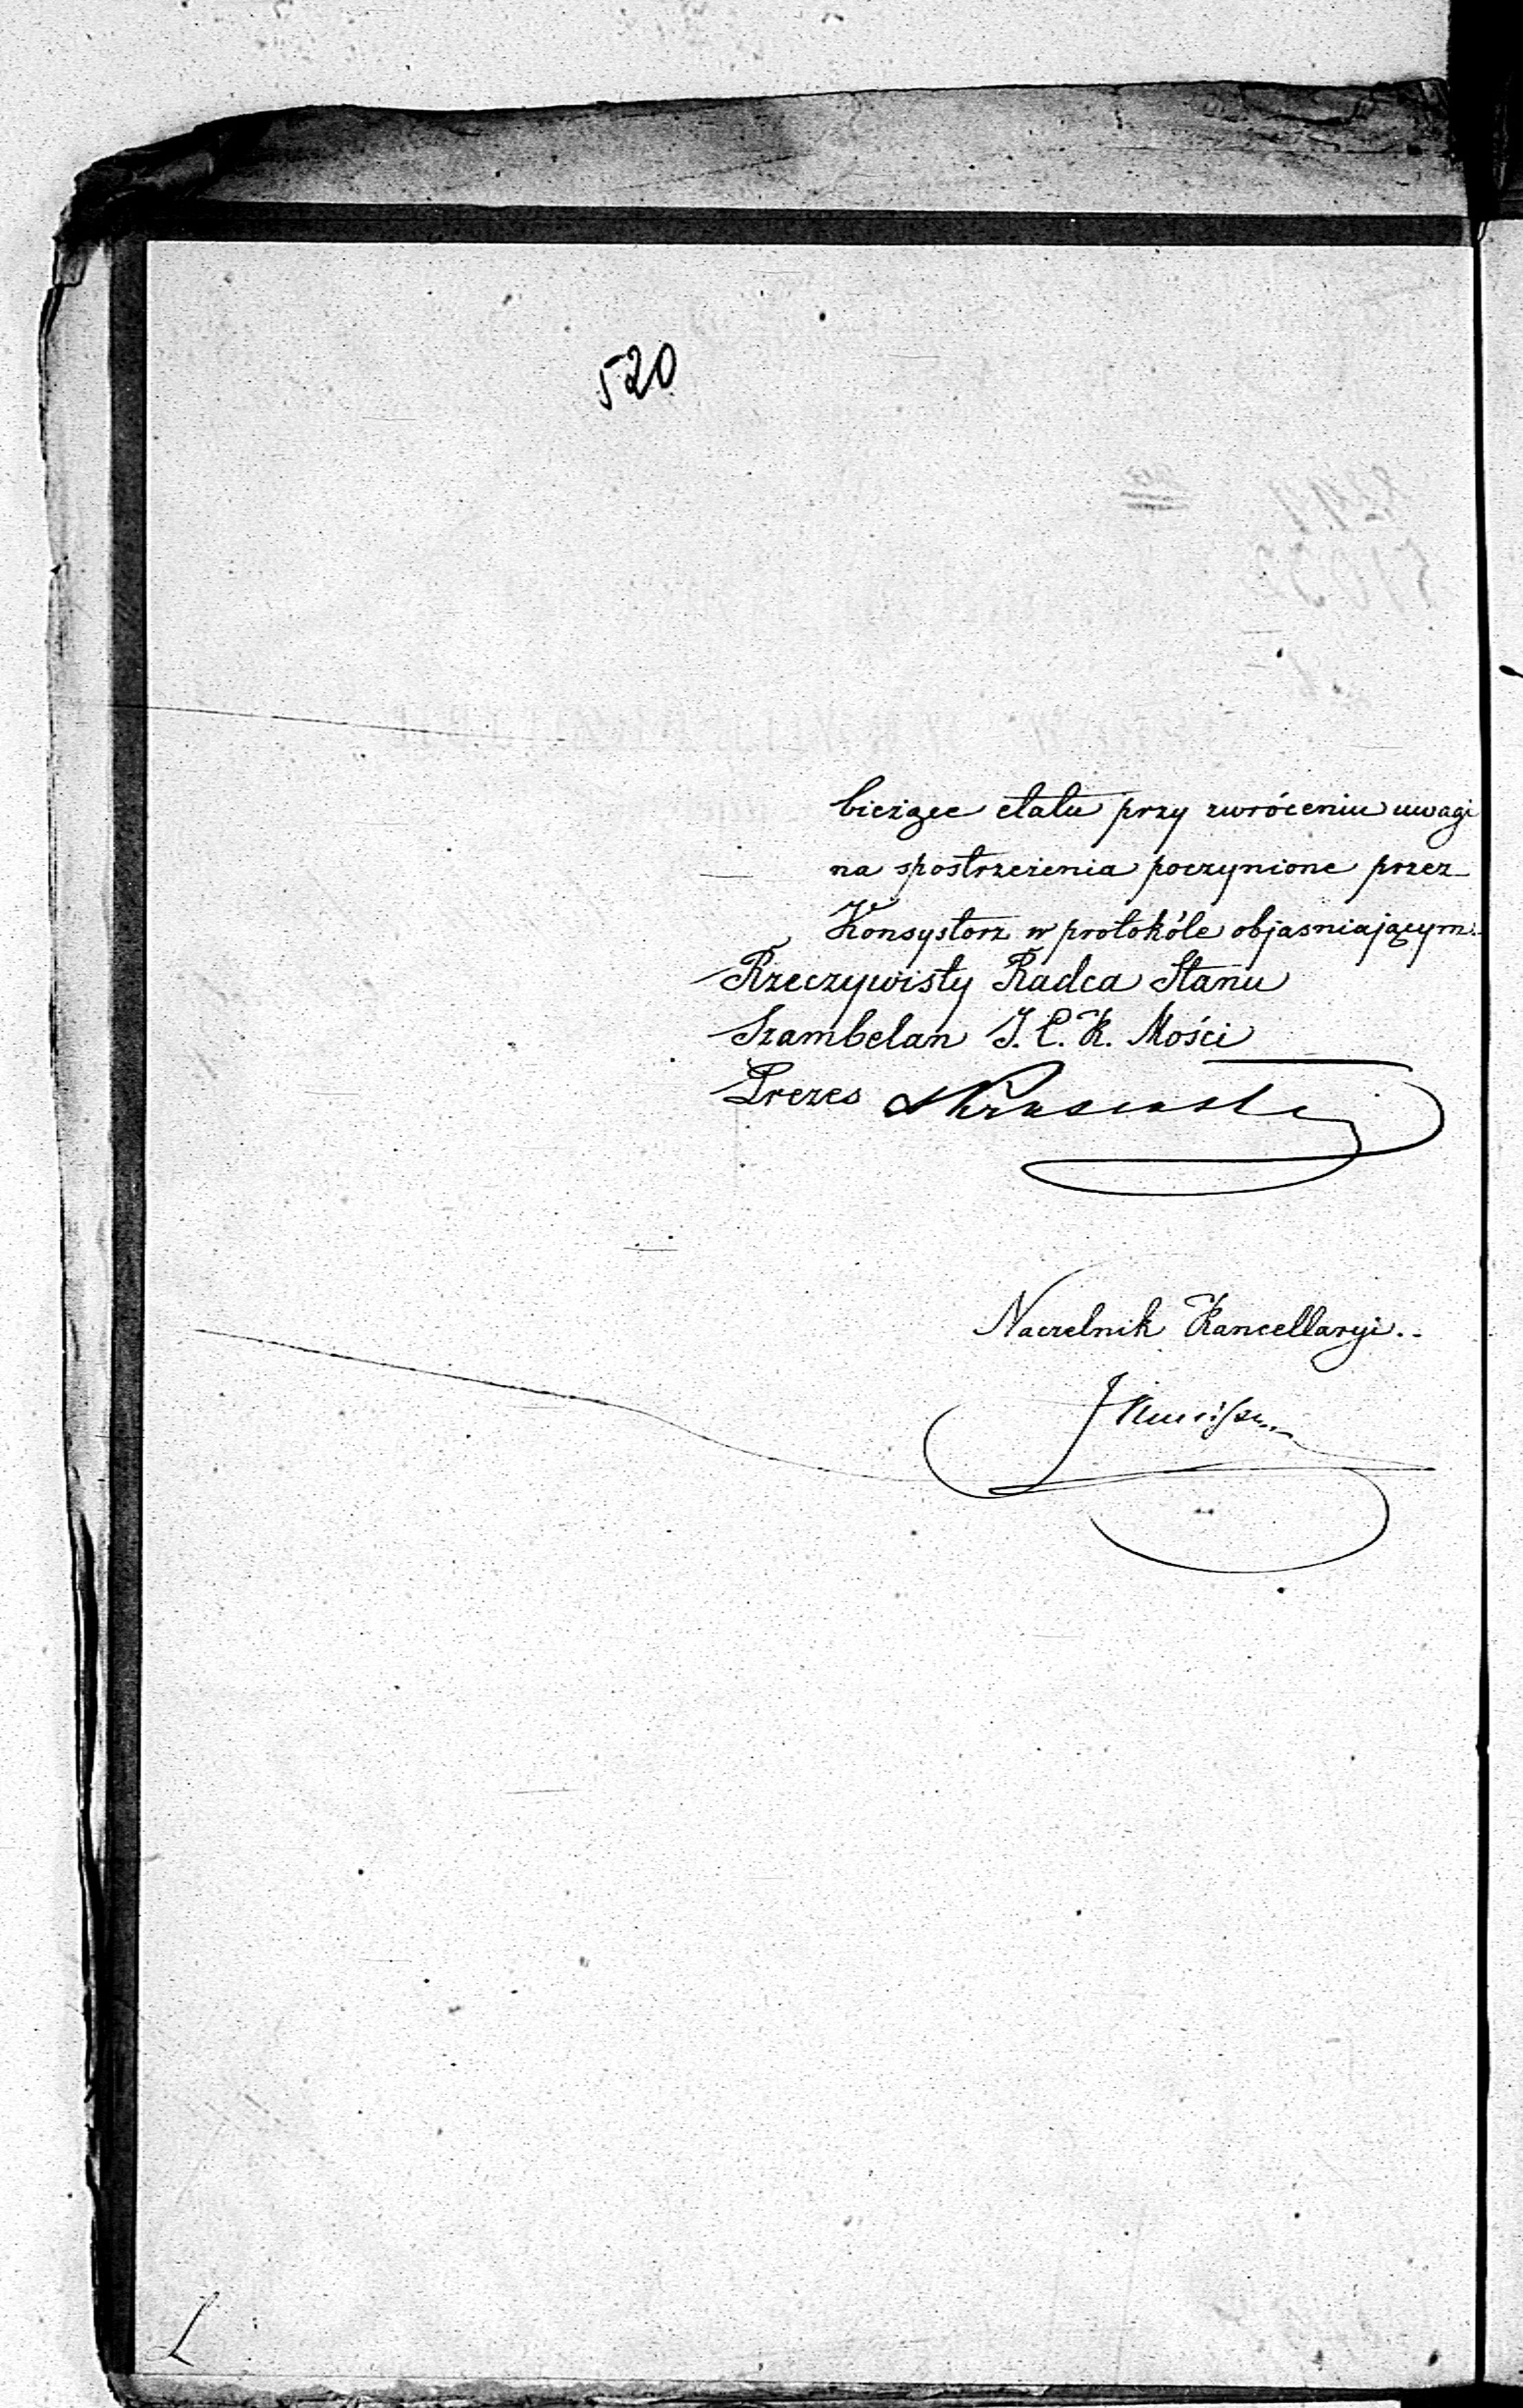 520
bieżące etatu przy zwróceniu uwagi
na spostrzeżenia poczynione przez
Konsystorz w protokóle objasniającym.
Rzeczywisty Radca Stanu
Szambelan J. C. K. Mości
Prezes
Naczelnik Kancellaryi..